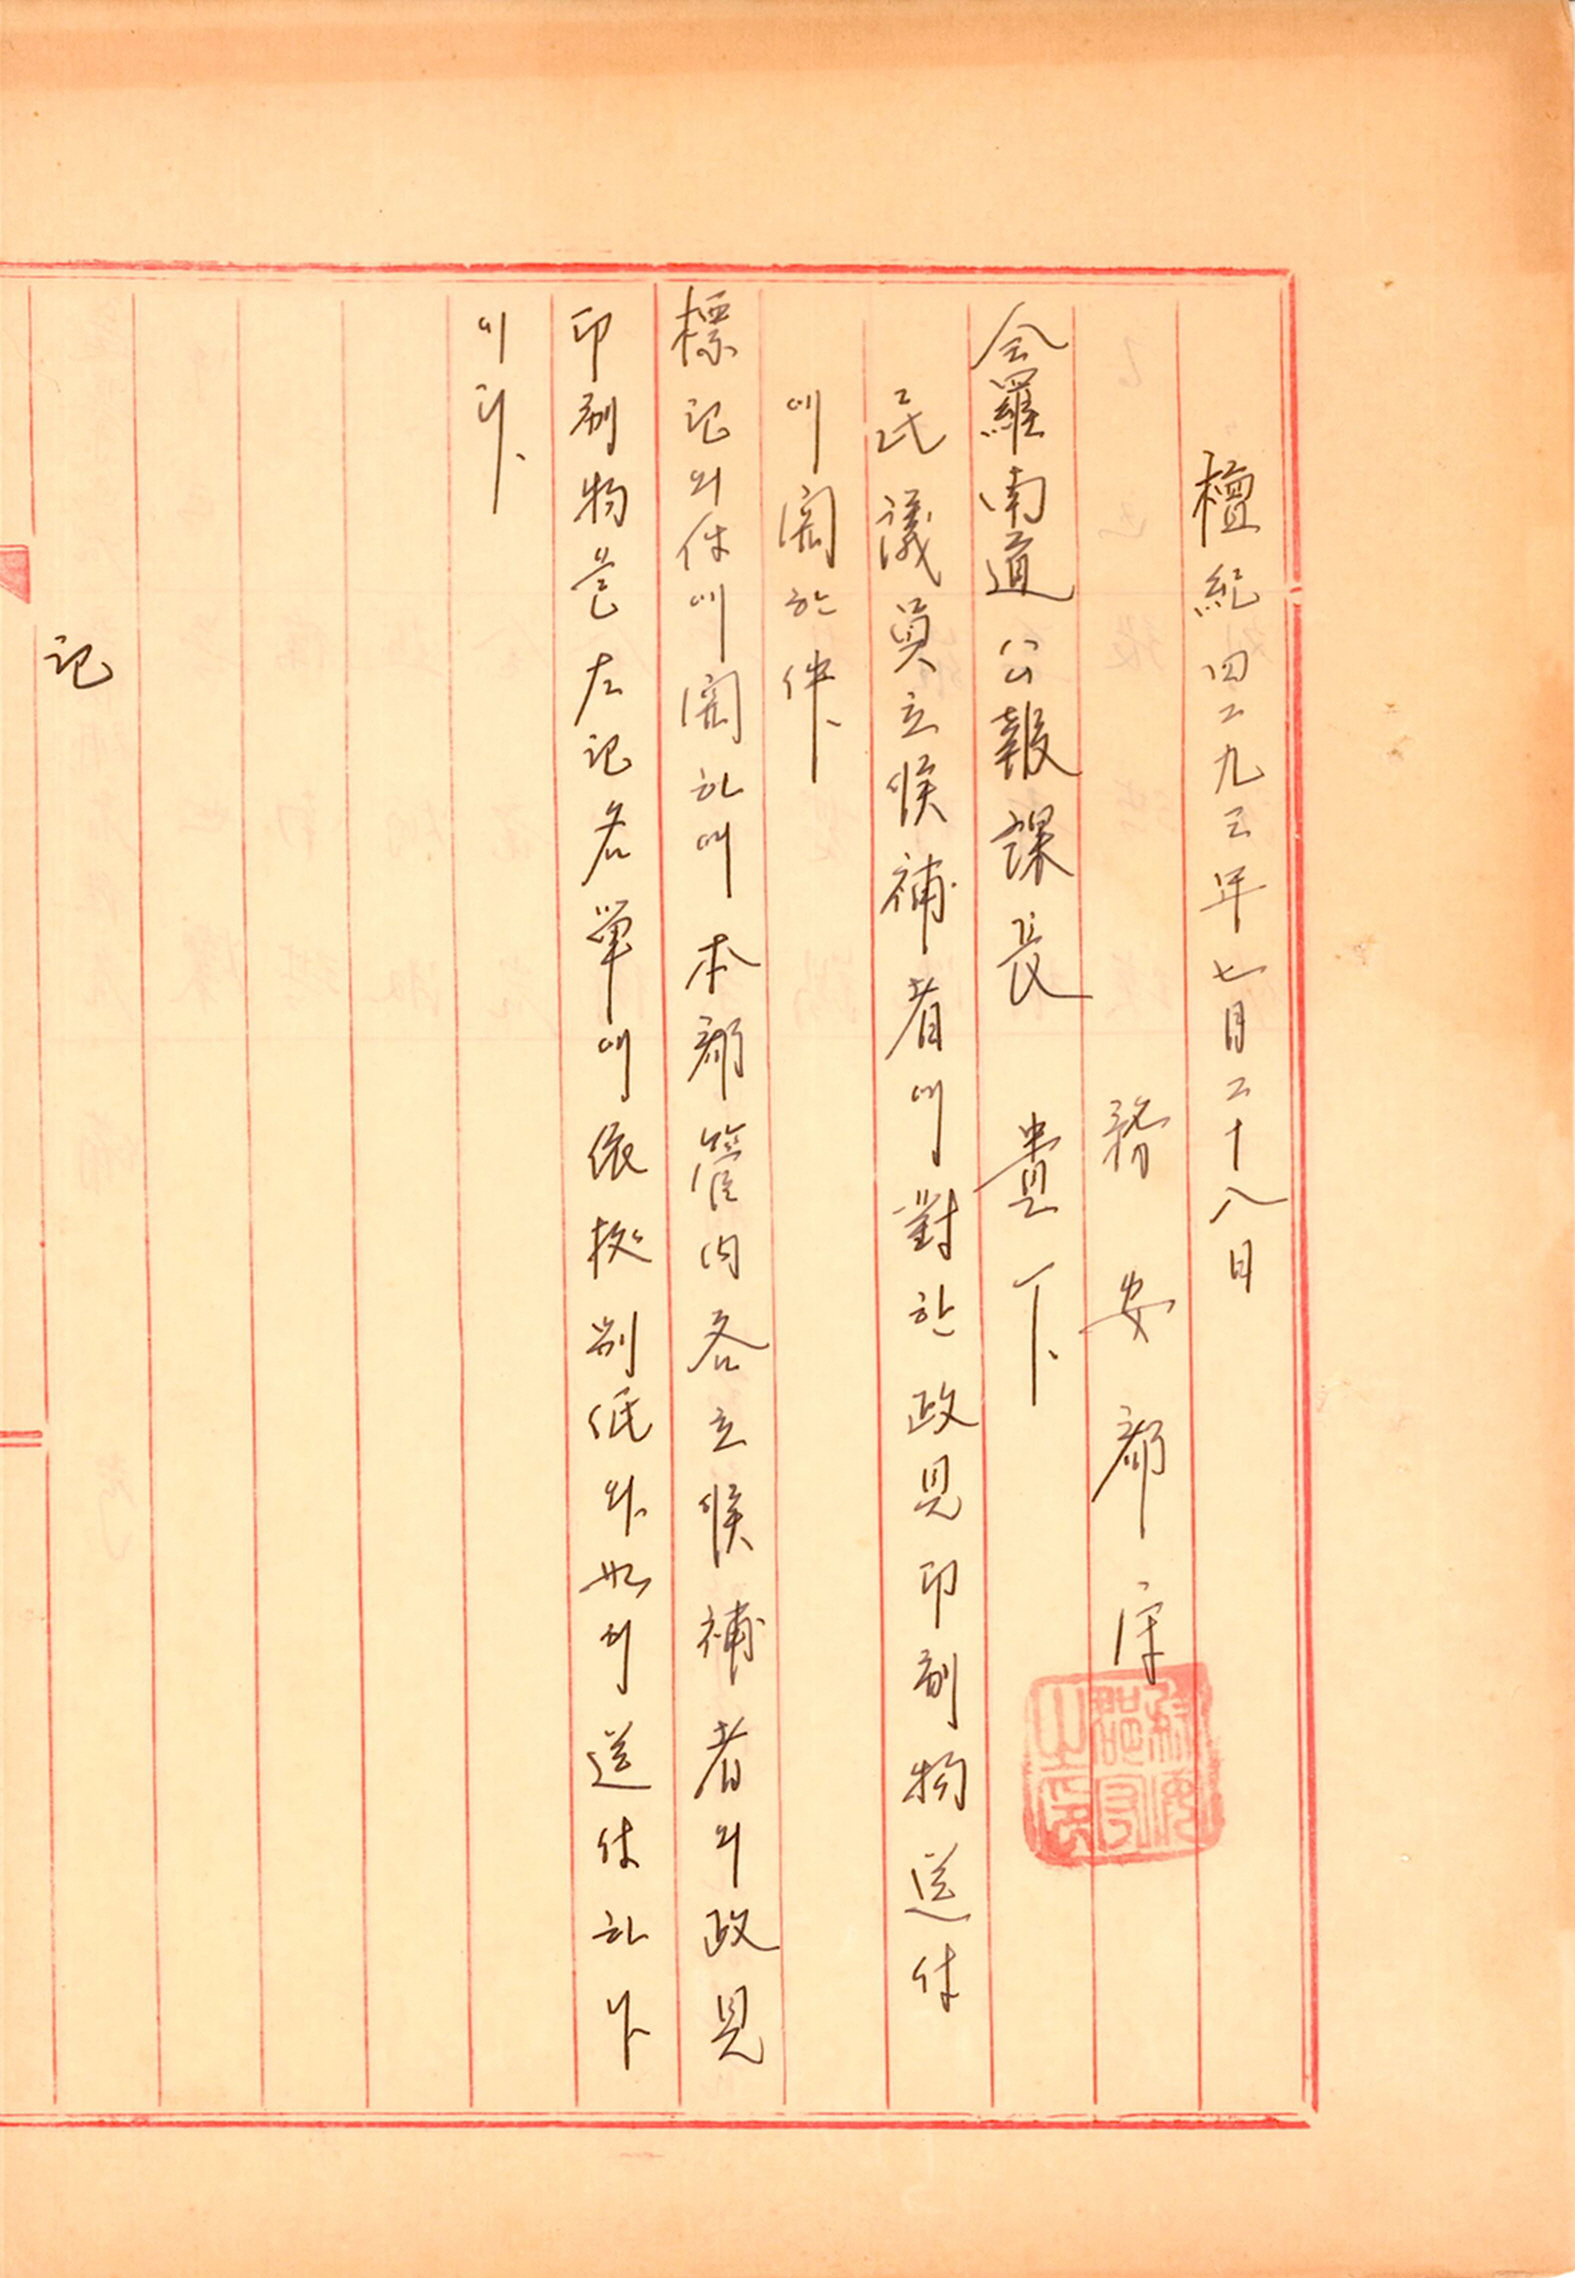 檀紀四二九三年七月二十八日
務安郡守
全羅南道公報課長 貴下
民議員立候補者에對한政見印刷物送付
에關한件
標記의件에關하여本郡管内各立候補者의政見
印刷物을左記名單에依据別紙와如히送付하나
이다
記
務安郡守之印